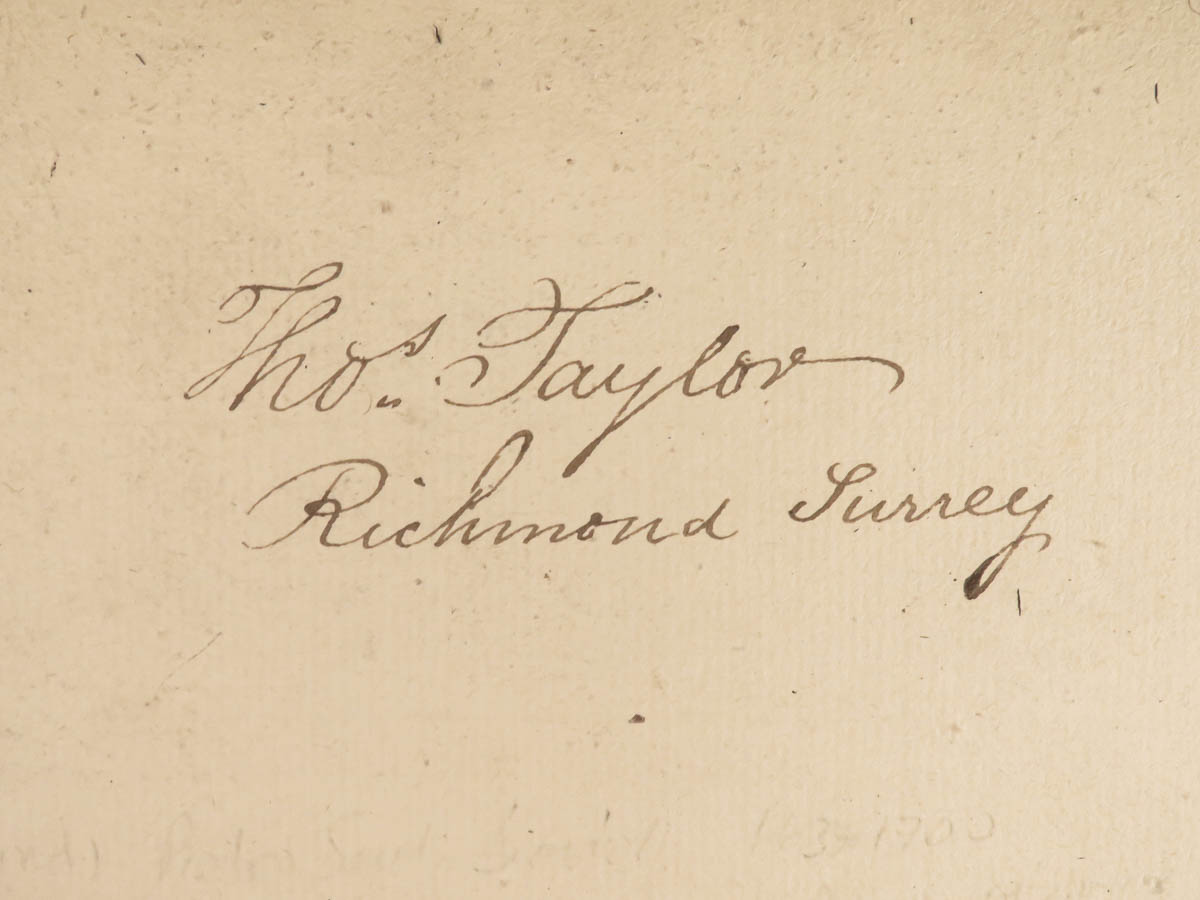 Thos. Taylor
Richmond Surrey